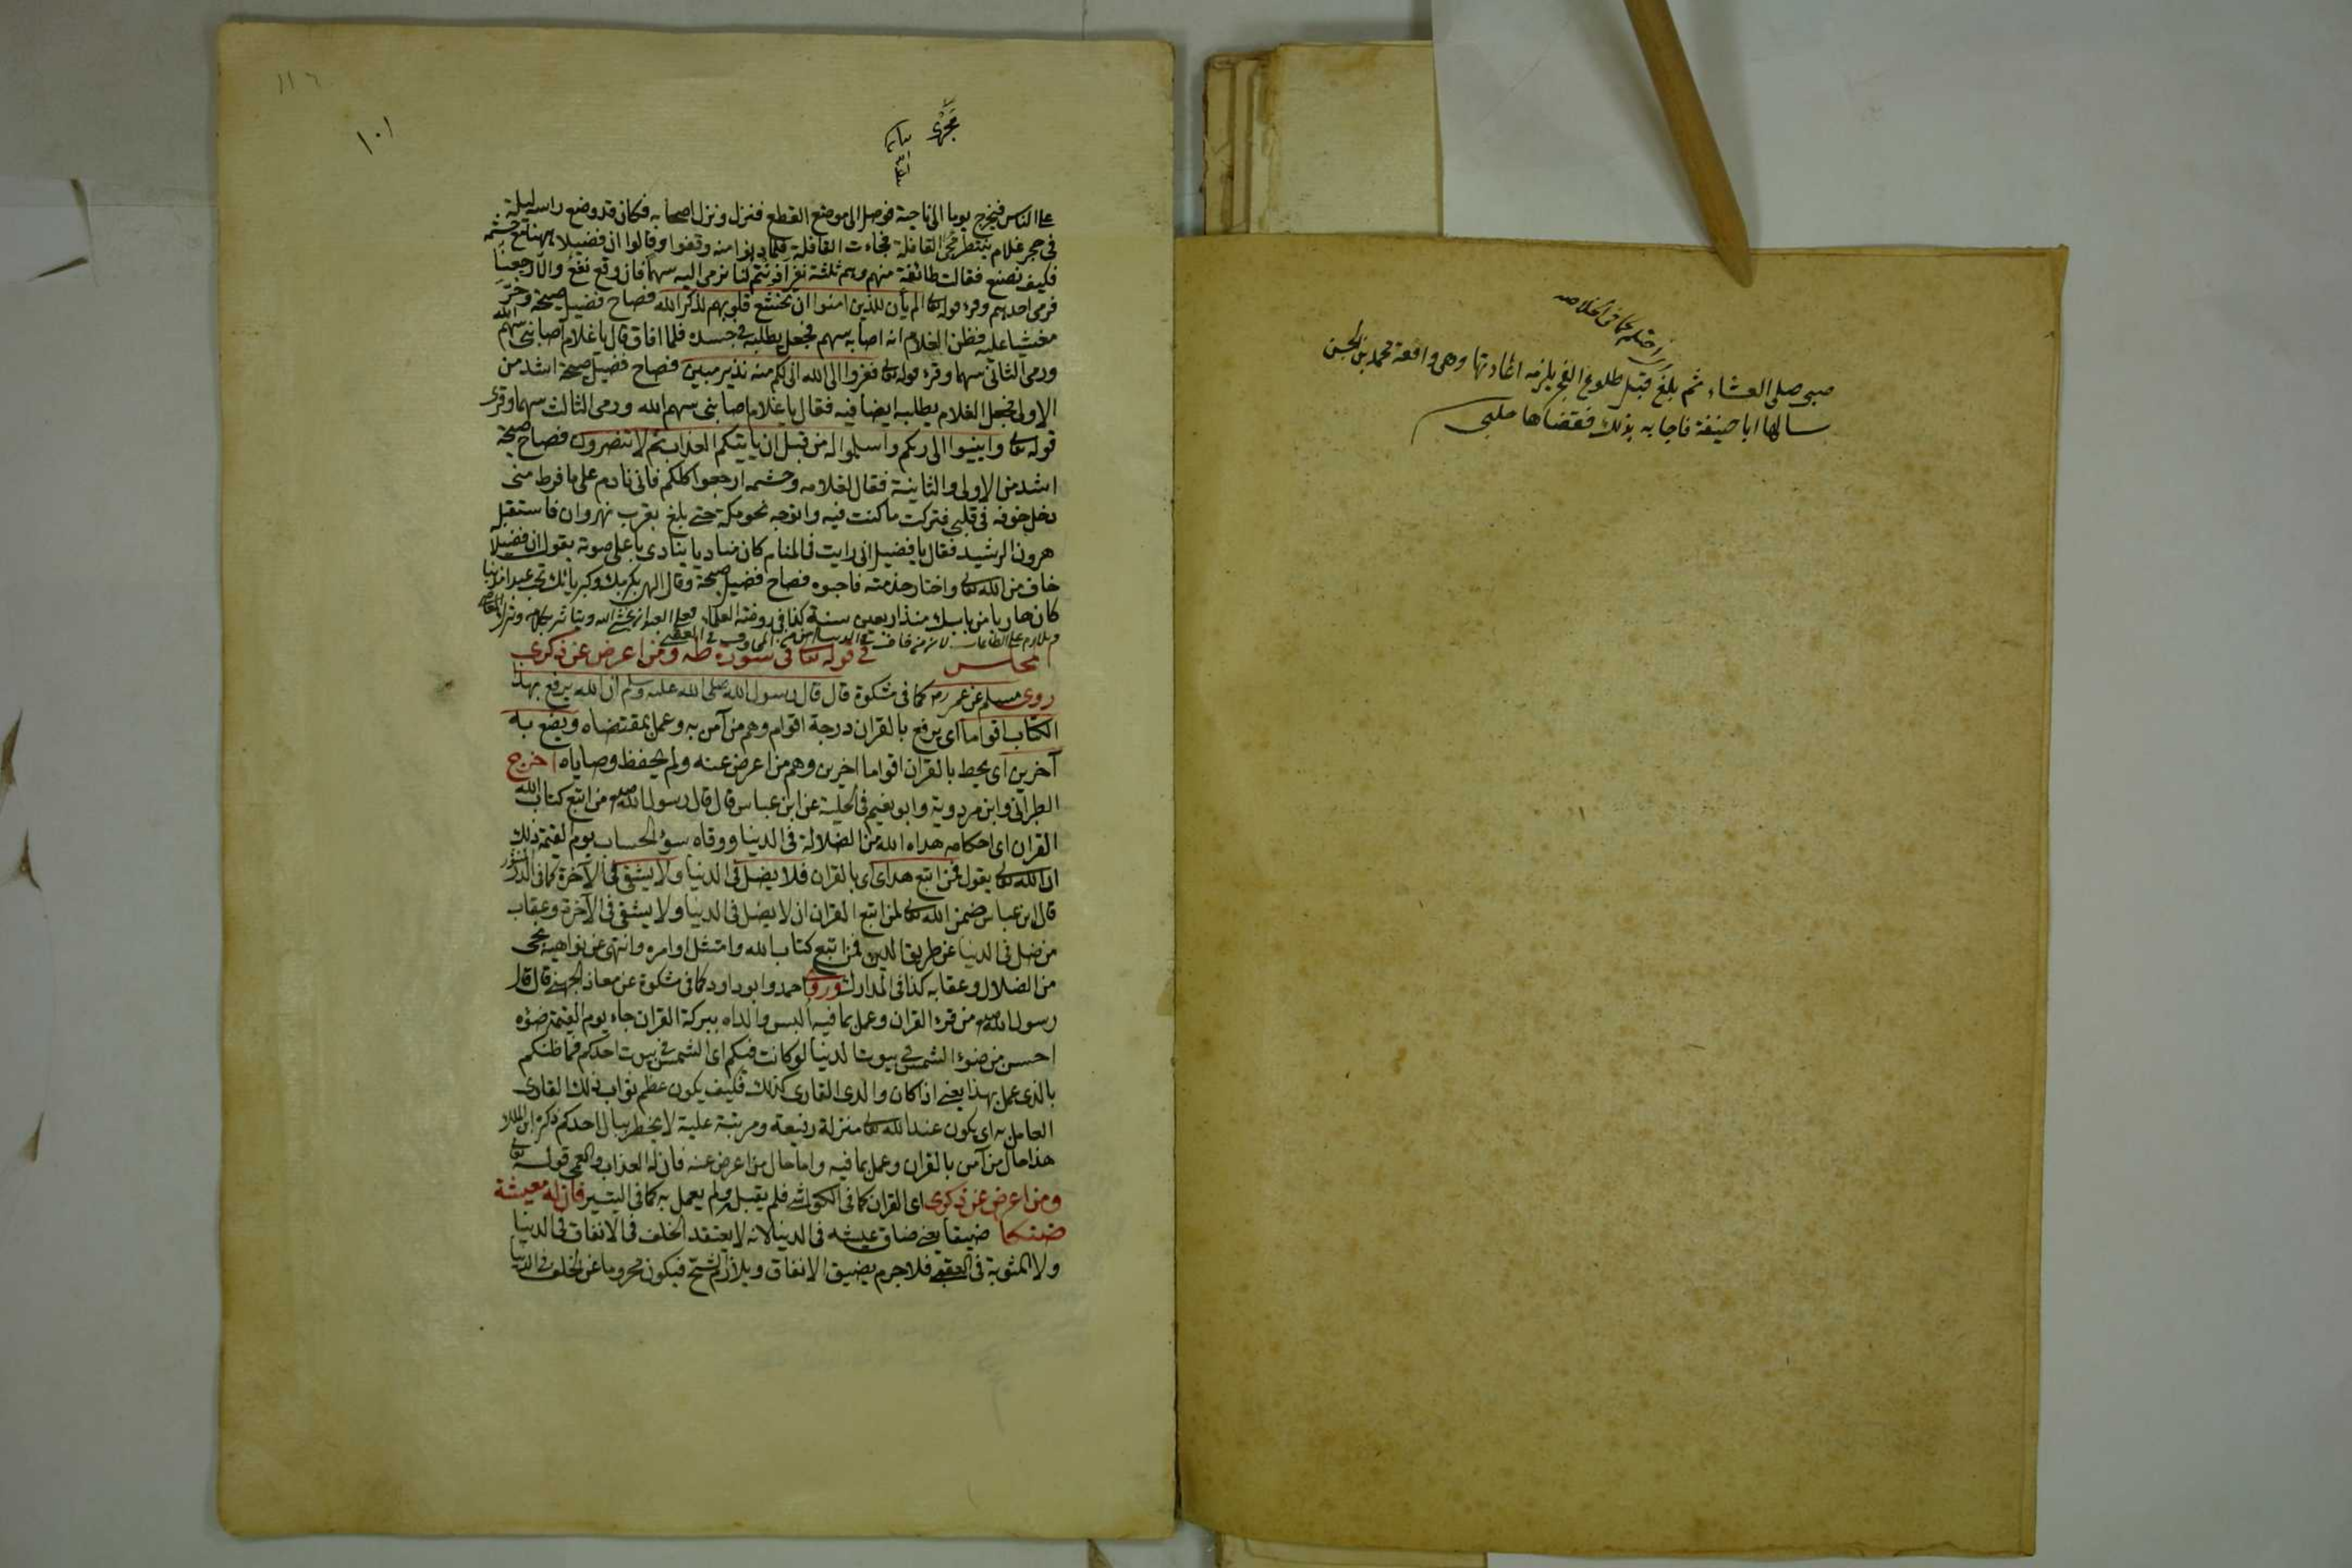 صبى صلى العشاء ثم بلغ قبل طلوع الفجر يلزمه اعادتها وهى واقعة محمد بن الحسن
سالها ابا حنيفة فاجابه بذلك فقضاها حلبى
كما فى الخلاصه
١١٦
١٠١
على الناس فيخرج يوما الى ناحية فوصل الى موضع القطع فنزل ونزل اصحابه فكان قد وضع راسه ليلة
فى حجر غلام ينتظر القافلة فجاءت القافلة فلما دنوا منه وقفوا وقالوا ان فضيلا ههنا مع حشمه
فكيف نصنع فقالت طائفة منهم وهم ثلثة نفر نرمى اليه سهما فان وقع نفع والا رجعنا
فرمى احدهم وقرء قوله تعالى الم يأن للذين امنوا ان تخشع قلوبهم لذكر الله فصاح فضيل صيحة وخر
مغشيا عليه فظن الغلام انه اصابه سهم فجعل يطلبه فى جسده فلما افاق قال يا غلام اصابنى سهم الله
ورمى الثانى سهما وقرء قوله تعالى ففروا الى الله انى لكم منه نذير مبين فصاح فضيل صيحة اشد من
الاولى فجعل الغلام يطلبه ايضا فيه فقال يا غلام اصابنى سهم الله ورمى الثالث سهما وقرئ
قوله تعالى وانيبوا الى ربكم واسلموا له من قبل ان يأتيكم العذاب ثم لا تنصرون فصاح صيحة
اشد من الاولى والثانية فقال لغلامه وحشمه ارجعوا كلكم فانى نادم على ما فرط منى
دخل خوفه فى قلبى فتركت ما كنت فيه واتوجه نحو مكة حتى بلغ بقرب نهروان فاستقبل
هرون الرشيد فقال يا فضيل انى رايت فى المنام كان مناديا ينادى باعلى صوته يقول ان فضيلا
خاف من الله تعالى واختار خدمته فاحبوه فصاح فضيل صيحة وقال الهى بكرمك وكبريائك تحب عبدا مذنبا
كان هاربا من بابك منذ اربعين سنة كذا فى روضة العلماء فعلى العبد ان يخشى الله
ويلازم على الطاعات لانه من خاف فى الدنيا
مجلس فى قوله تعالى فى سورة طه ومن اعرض عن ذكرى
روى مسلم عن عمر رض كما فى مشكوة قال قال رسول الله صلى الله عليه وسلم ان الله يرفع بهذا
الكتاب اقواما اى يرفع بالقران درجة اقوام وهم من آمن به وعمل بمقتضاه ويضع به
آخرين اى يحط بالقران اقواما اخرين وهم من اعرض عنه ولم يحفظ وصاياه اخرج
الطبرانى وابن مردوية وابو نعيم فى الحلية عن ابن عباس قال قال رسول الله صلعم من اتبع كتاب الله
القران اى احكامه هداه الله من الضلالة فى الدنيا ووقاه سوء الحساب يوم القيمة ذلك
ان الله تعالى يقول فمن اتبع هداى اى بالقران فلا يضل فى الدنيا ولا يشقى فى الآخرة كما فى الدر المنثور
قال ابن عباس ضمن الله تعالى لمن اتبع القران ان لا يضل فى الدنيا ولا يشقى فى الآخرة وعقاب
من ضل فى الدنيا عن طريق الدين فمن اتبع كتاب الله وامتثل اوامره وانتهى عن نواهيه نجى
من الضلال وعقابه كذا فى المدارك وروى احمد وابو داود كما فى مشكوة عن معاذ الجهنى قال قال
رسول الله صلعم من قرء القران وعمل بما فيه ألبس والداه ببركة القران جاء يوم القيمة ضوءه
احسن من ضوء الشمس فى بيوت الدنيا لو كانت فيكم اى الشمس فى بيوت احدكم فما ظنكم
بالذى عمل بهذا يعنى اذا كان والدى القارى كذلك فكيف يكون عظم ثواب ذلك القارى
العامل به اى يكون عند الله تعالى منزلة رفيعة ومرتبة علية لا يخطر ببال احدكم ذكره ابن الملك
هذا حال من آمن بالقران وعمل بما فيه واما حال من اعرض عنه فان له العذاب والعمى قوله تعالى
ومن اعرض عن ذكرى اى القران كما فى الكواشى فلم يقبل ولم يعمل به كما فى التيسير فان له معيشة
ضنكا ضيقا يعنى ضاق عيشه فى الدنيا لانه لا يعتقد الخلف فى الانفاق فى الدنيا
ولا المثوبة فى العقبى فلا جرم يضيق الانفاق ويلازم الشح فيكون محروما عن الخلف فى الدنيا